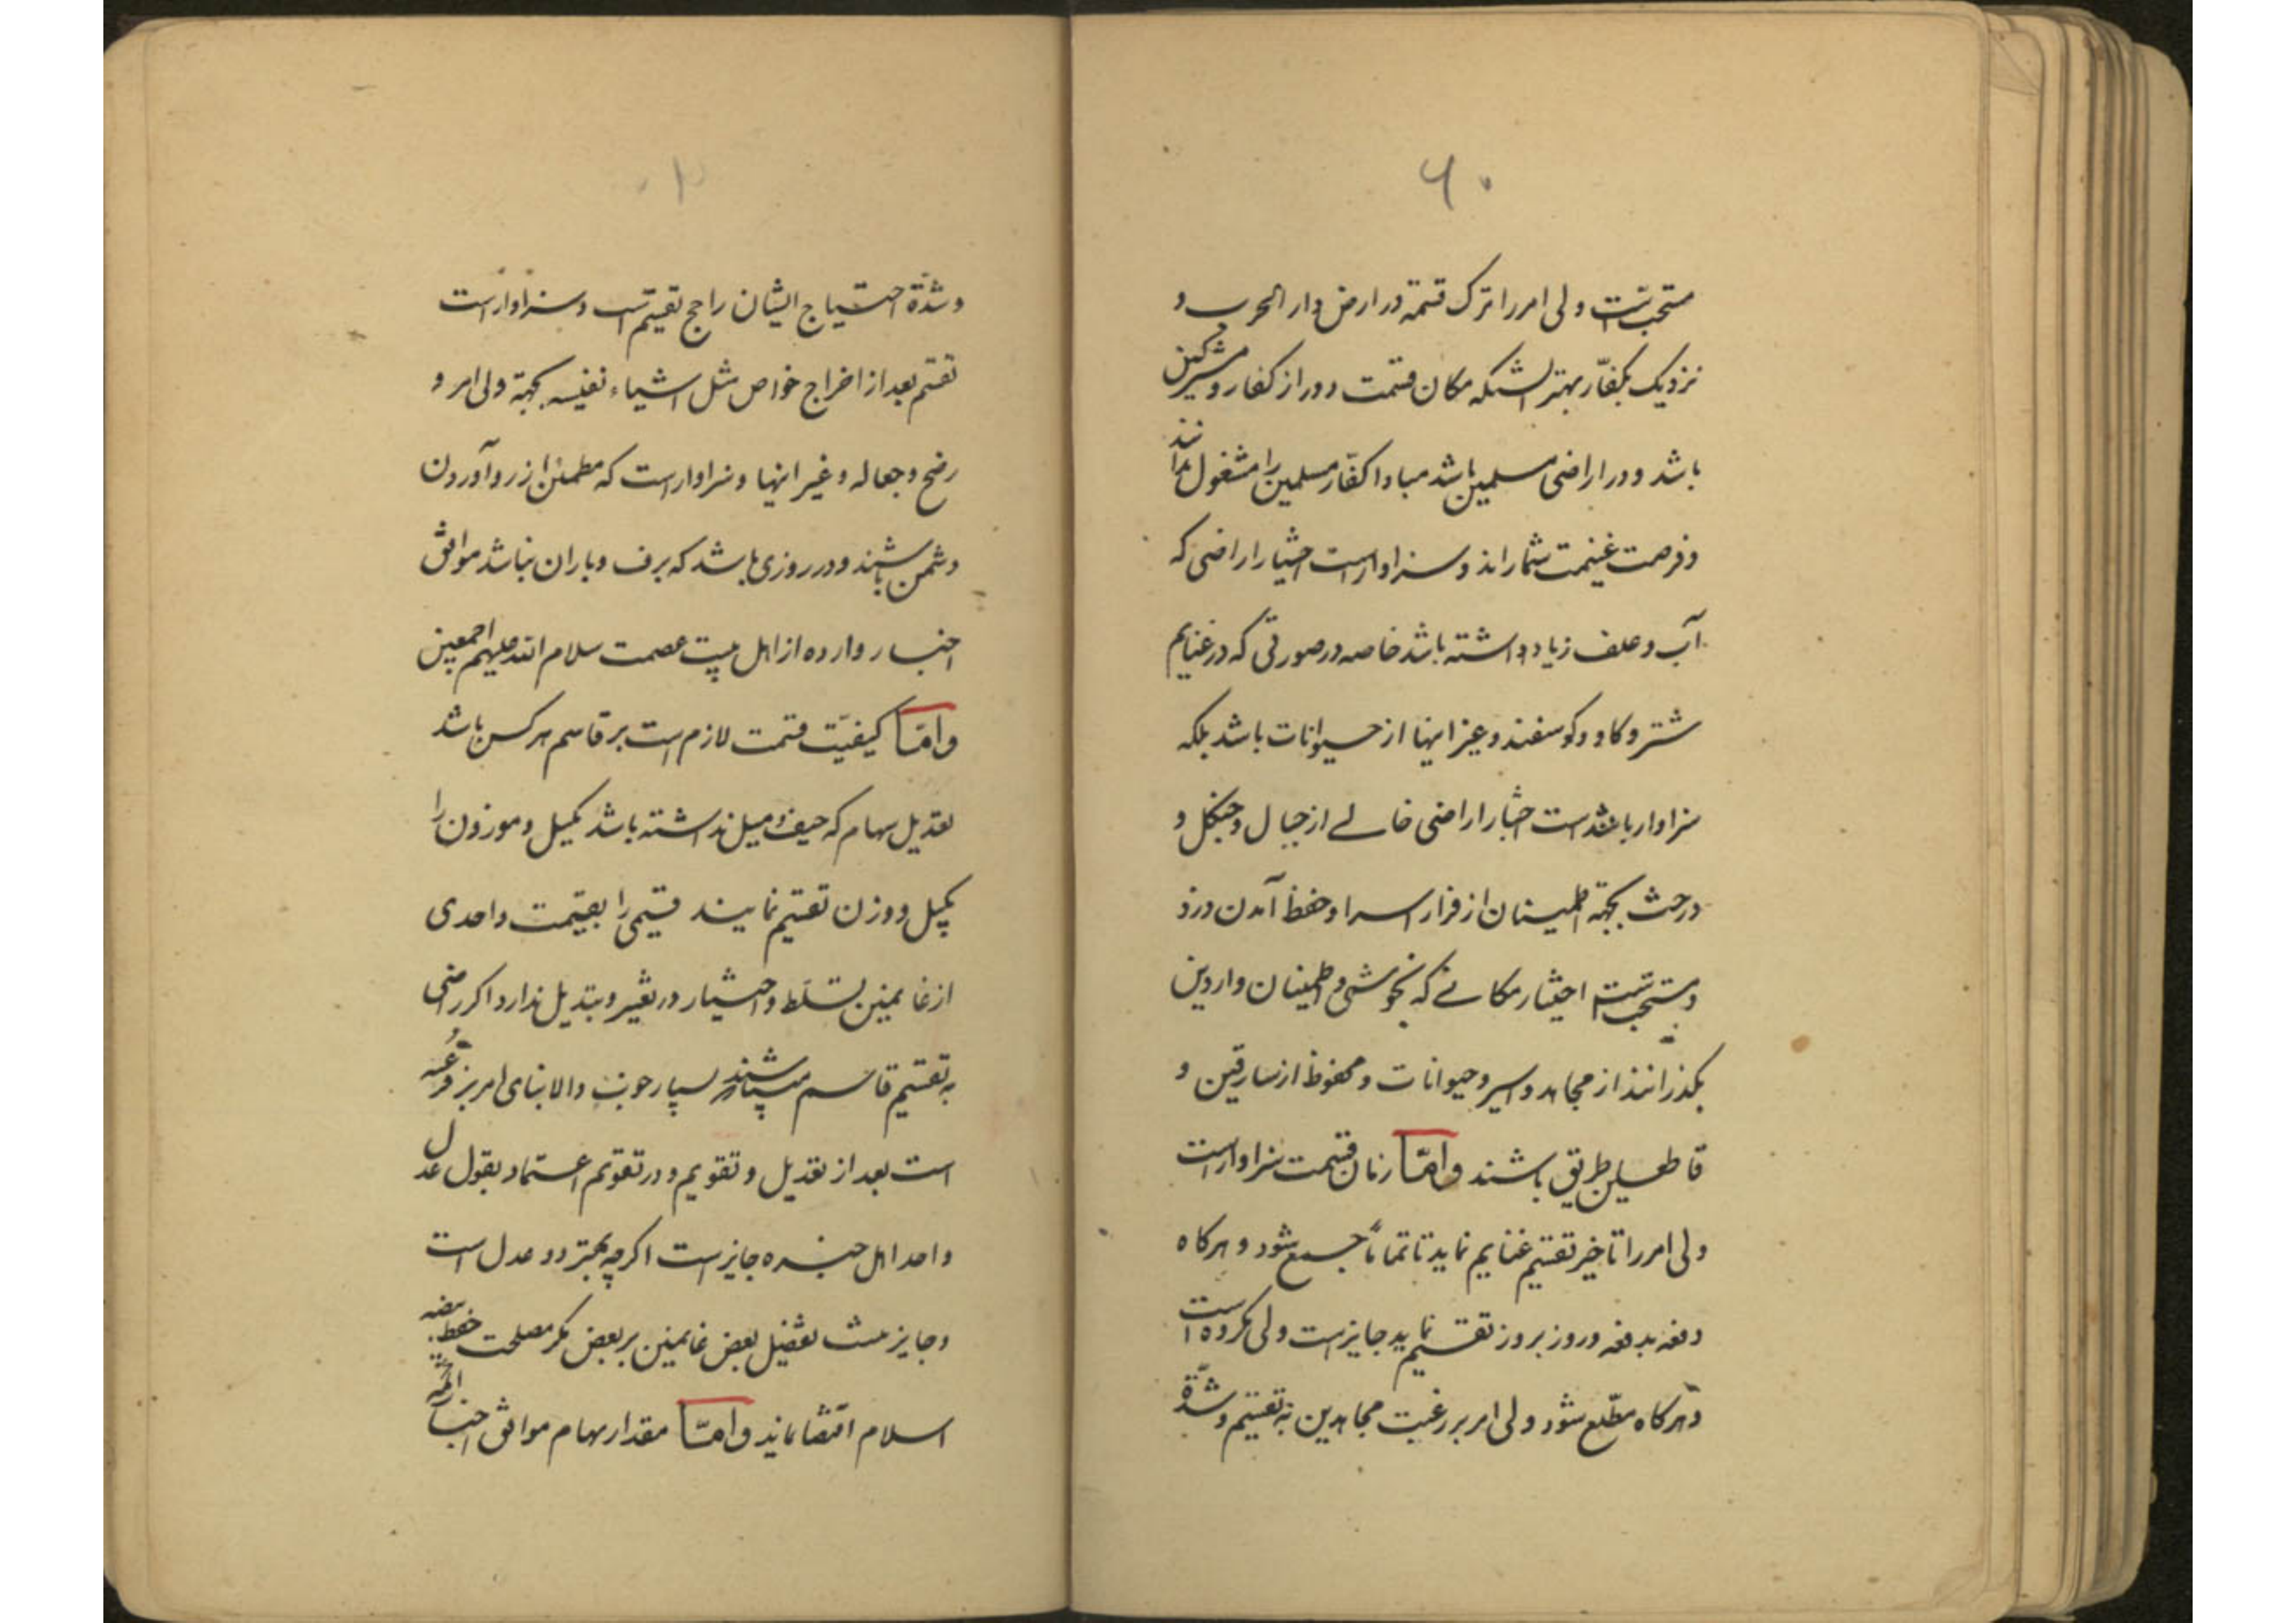 ۶۰
مستحب است ولی امر را ترک قسمة در ارض دار الحرب و
نزدیک بکفّار بهتر انستکه مکان قسمت دور از کفار و مشرکین
باشد و در اراضی مسلمین باشد مبادا کفّار مسلمین را مشغول بدانند
و فرصت غنیمت شمارند و سزاوار است اختیار اراضی که
آب و علف زیاد داشته باشد خاصه در صورتی که در غنایم
شتر و کاو و کوسفند و غیر اینها از حیوانات باشد بلکه
سزاوار باشد است اختیار اراضی خالی از جبال و جنکل و
درخت بجهة اطمینان از فرار اسرا و حفظ آمدن دزد
و مستحب است اختیار مکانی که بخوشی و اطمینان واردین
بکذرانند از مجاهد و اسیر و حیوانات و محفوظ از سارقین و
قاطعین طریق باشند و امّا زمان قسمت سزاوار است
ولی امر را تاخیر تقسیم غنایم نماید تا تماماً جمع شود و هرکاه
دفعه بدفعه و روز بروز تقسیم نماید جایز است ولی مکروه است
و هرکاه مطّلع شود ولی امر بر رغبت مجاهدین به تقسیم و شدّة
و شدّة احتیاج ایشان راجح تقسیم است و سزاوار است
تقسیم بعد از اخراج خواص مثل اشیاء نفیسه بجهة ولی امر و
رضخ و جعاله و غیر اینها و سزاوار است که مطمئن از رو آوردن
دشمن باشند و در روزی باشد که برف و باران نباشد موافق
اخبار وارده از اهل بیت عصمت سلام الله علیهم اجمعین
و امّا کیفیّت قسمت لازم است بر قاسم هر کس باشد
تعدیل سهام که حیف و میل نداشته باشد مکیل و موزون را
بکیل و وزن تقسیم نمایند قیمی را بقیمت و احدی
از غانمین تسلّط و اختیار در تغییر و تبدیل ندارد اکر راضی
به تقسیم قاسم باشند بسیار خوب و الا بنای امر بر قرعه
است بعد از تعدیل و تقویم و در تقویم اعتماد بقول عدل
واحد اهل خبره جایز است اکرچه بهتر دو عدل است
و جایز نیست تفضیل بعض غانمین بر بعض مکر مصلحت حفظ بیضه
اسلام اقتضا نماید و امّا مقدار سهام موافق اخبار ائمّه